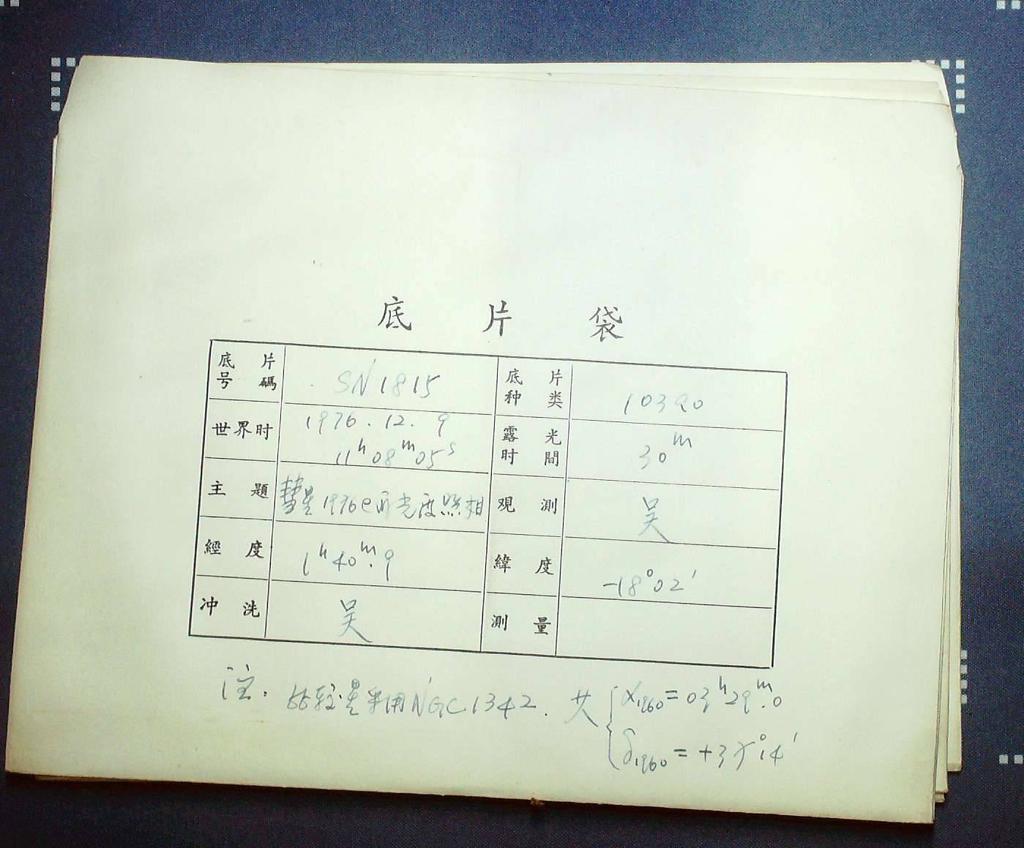 底片袋
底片号碼 SN1815 底片种类 10390
世界时 1976.12.9 露光时間 30ᵐ
11ʰ08ᵐ05ˢ
主題 彗星1976e 光度照相 观測 吴
經度 1ʰ40ᵐ.9 緯度 -18°02′
冲洗 吴 測量
注. 比较星采用NGC1342. α1960=03ʰ29ᵐ.0
δ1960=+37°14′